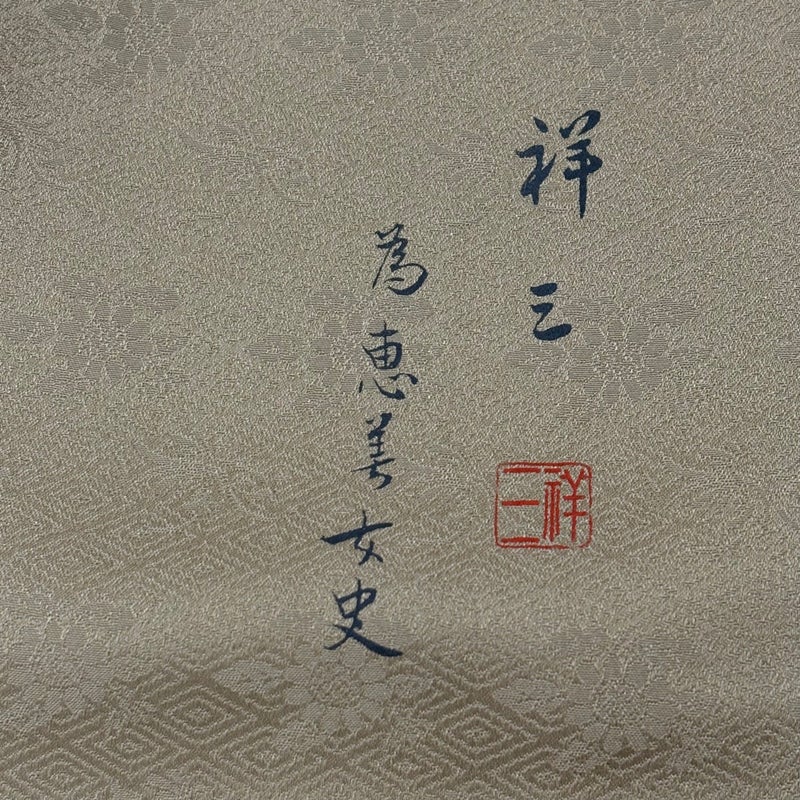 祥三
祥三
為恵美女史